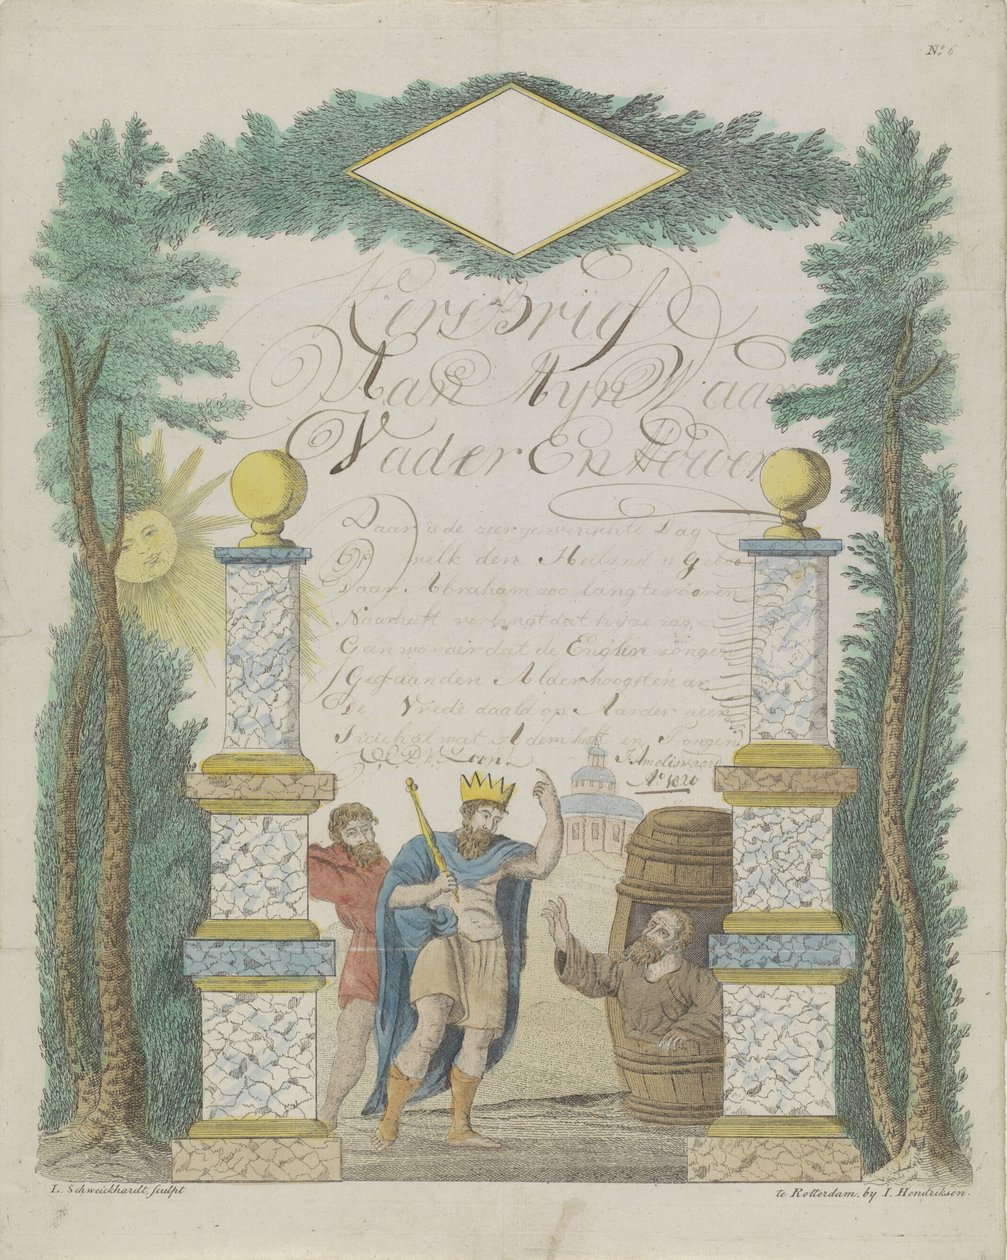 No. 6
Kers Brief
Aan Mÿn Waar
Vader En
Daar is de zeer gewenschte Dag
welk den Heiland is Geboo
Daar Abraham zoo lang te vooren
Naar heeft verlangt dat hij ze zag
Geen wonder dat de Englen zongen
Geef dan den Alderhoogsten eer
De Vrede daald op Aarde neer
al wat Adem heft en Tongen
Ameliswaard
Ao 1820
L. Schweickhardt, sculpt
te Rotterdam, by I. Hendriksen.